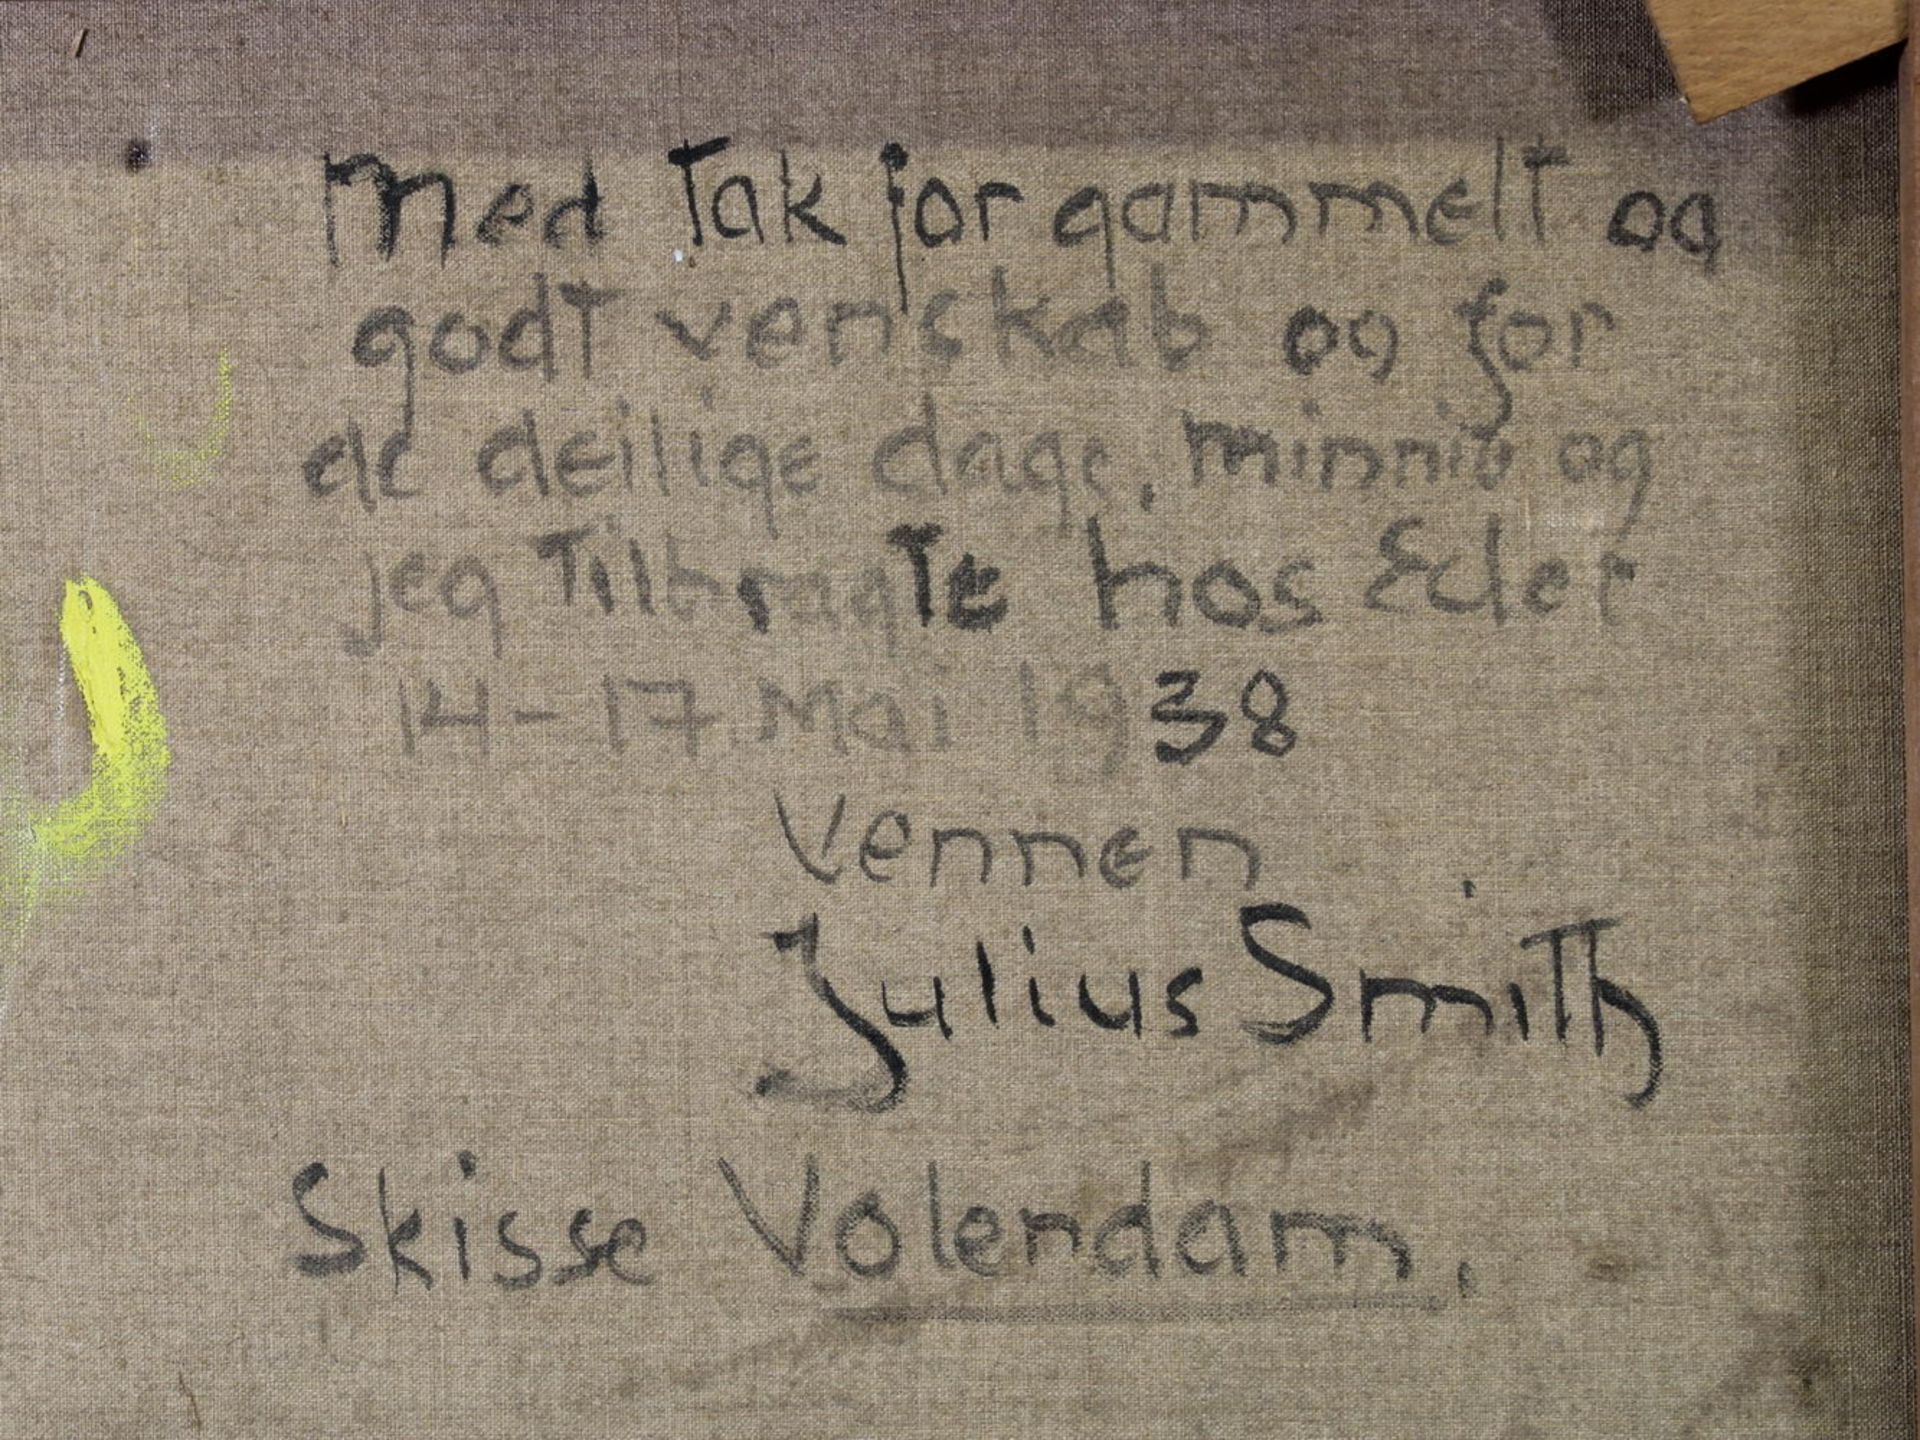 Med Tak for gammelt og
godt venskab og for
de deilige dage, minnie og
jeg Tilbragte hos Eder
14-17. Mai 1938
Vennen
Julius Smith
Skisse Volendam.